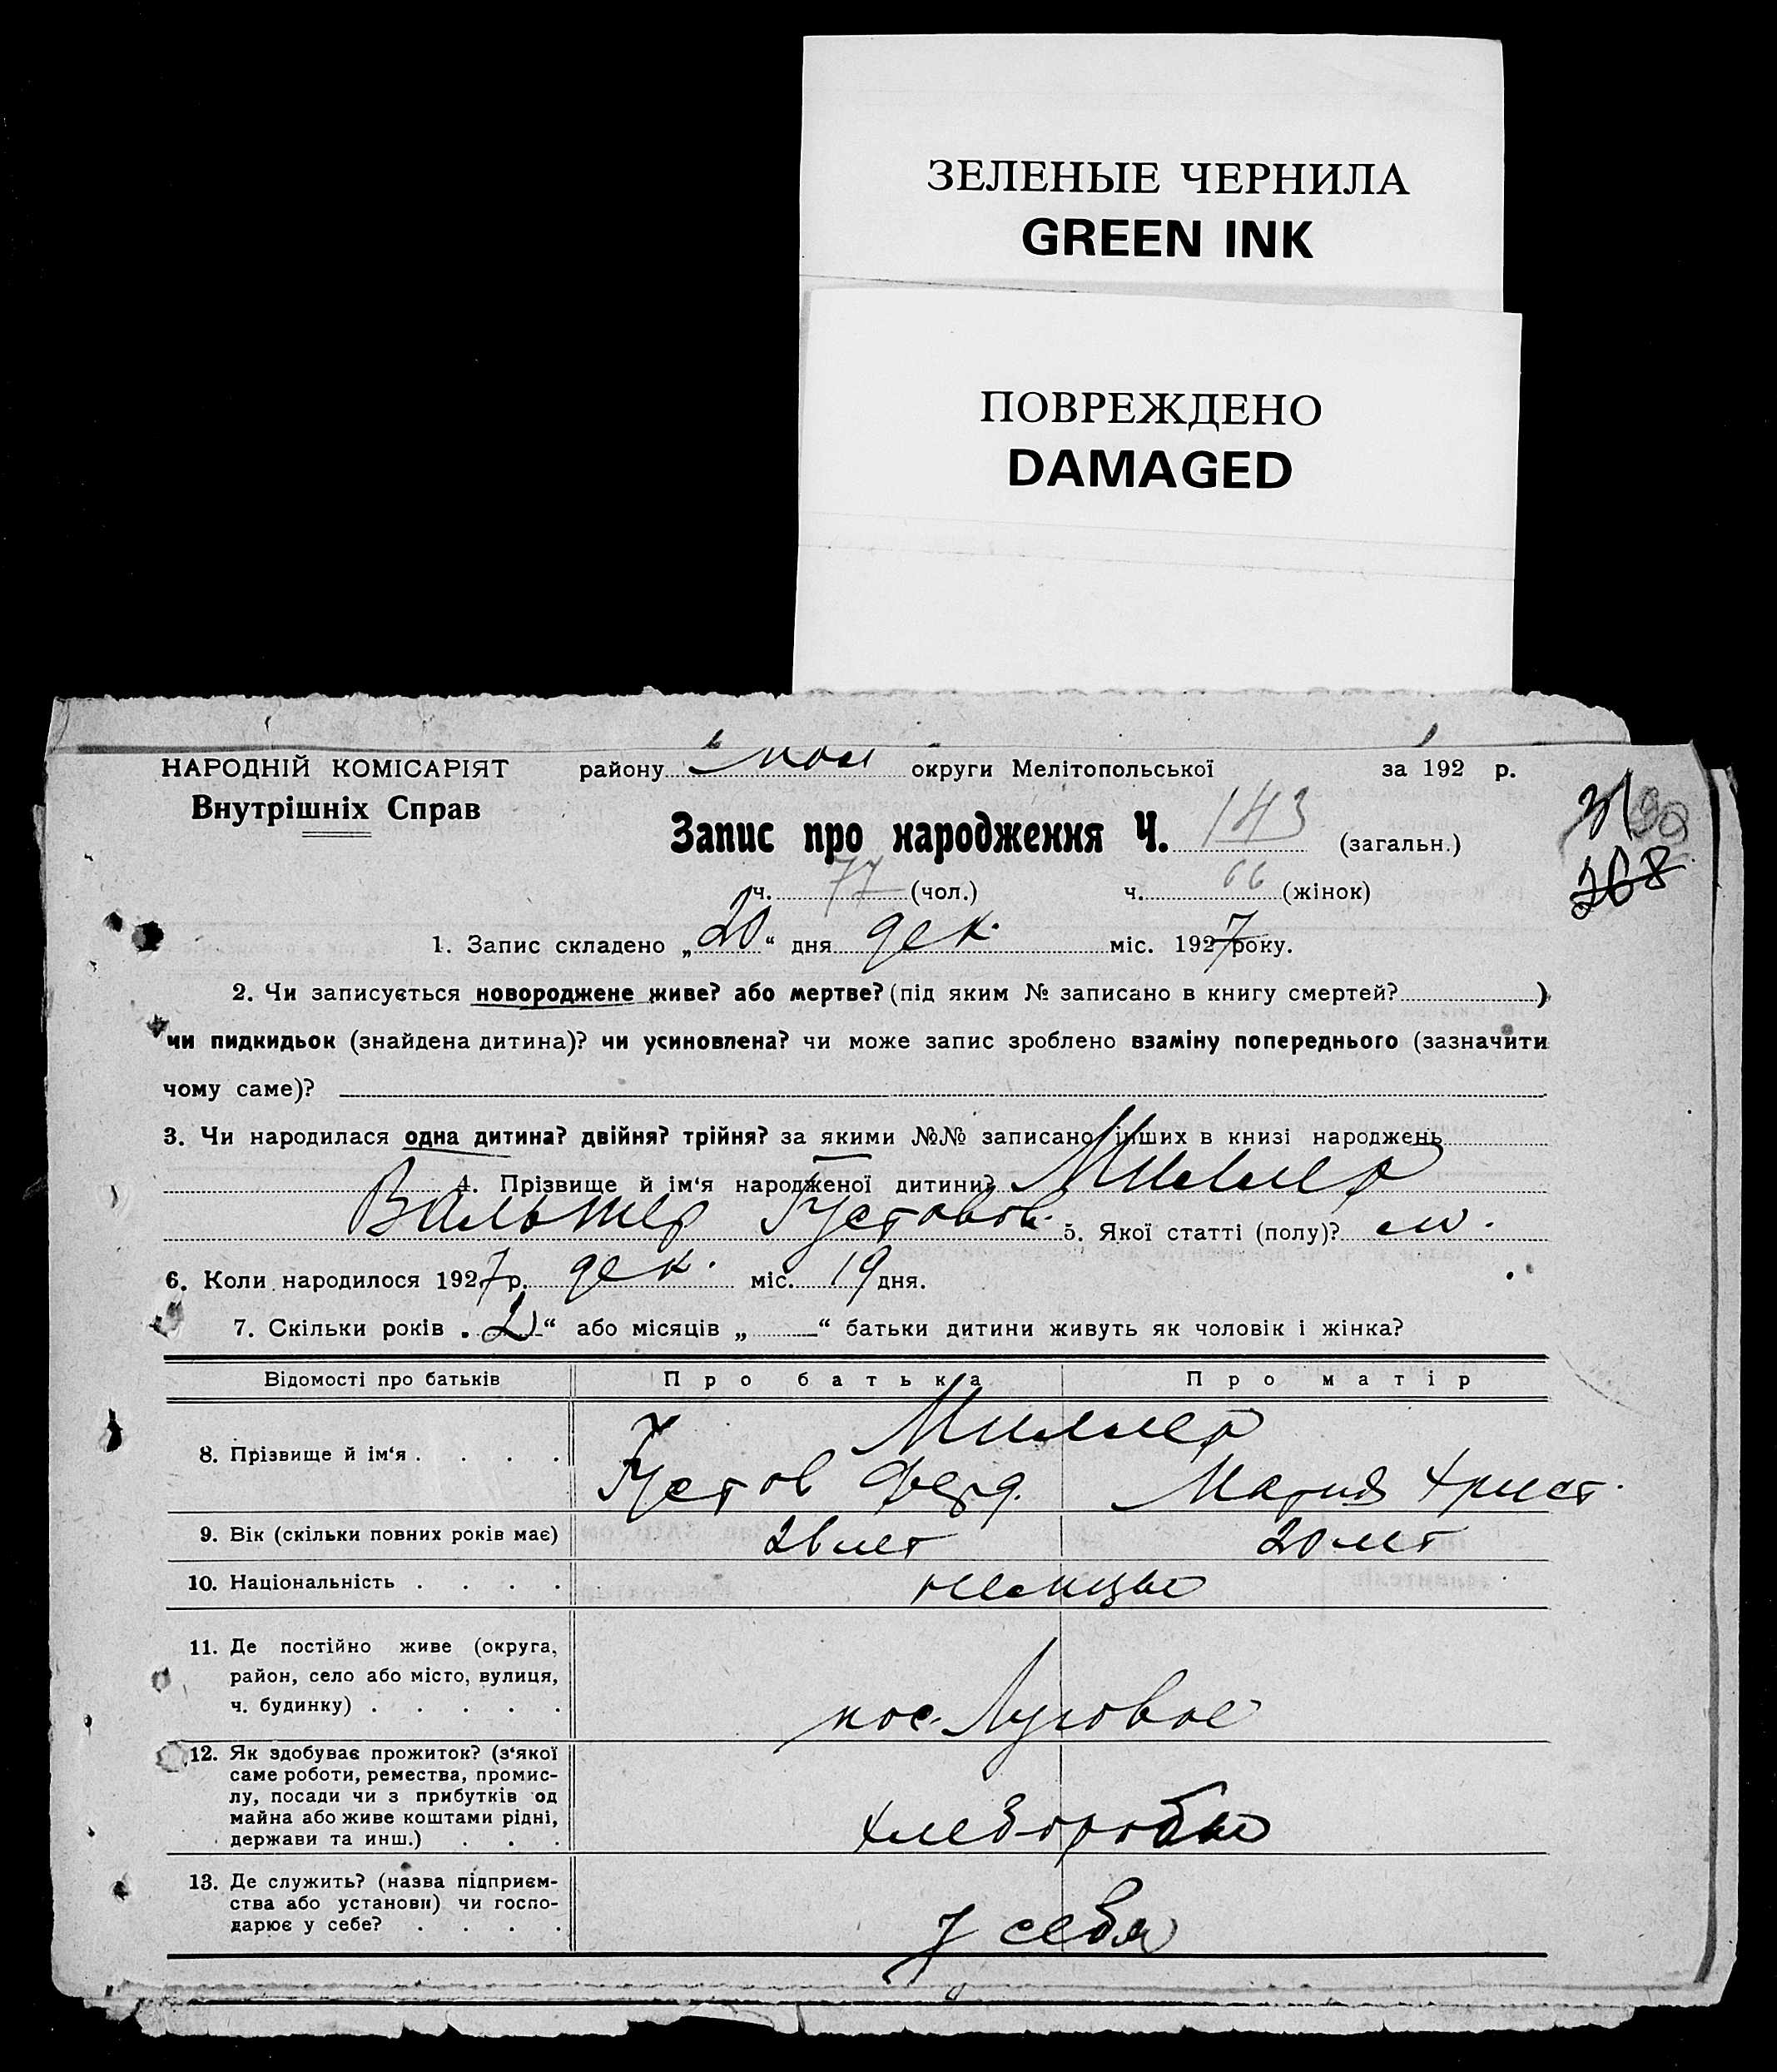 ЗЕЛЕНЫЕ ЧЕРНИЛА
GREEN INK
ПОВРЕЖДЕНО
DAMAGED
НАРОДНІЙ КОМІСАРІЯТ району Мол округи Мелітопольської за 192 р.
Внутрішніх Справ
Запис про народження Ч. 143 (загальн.)
ч. 77 (чол.) ч. 66 (жінок)
268
1. Запис складено „20“ дня дек. міс. 1927 року.
2. Чи записується новороджене живе? або мертве? (під яким № записано в книгу смертей? )
чи пидкидьок (знайдена дитина)? чи усиновлена? чи може запис зроблено взаміну попереднього (зазначити
чому саме)?
3. Чи народилася одна дитина? двійня? трійня? за якими №№ записано інших в книзі народжень
4. Прізвище й ім‘я народженої дитини? Миллер
Вальтер Густавов. 5. Якої статті (полу)? м.
6. Коли народилося 1927 р. дек. міс. 19 дня.
7. Скільки років „2“ або місяців „ “ батьки дитини живуть як чоловік і жінка?
Відомості про батьків Про батька Про матір
8. Прізвище й ім‘я . . . . Миллер
Густав Ферд. Мария Христ.
9. Вік (скільки повних років має) 26 лет 20 лет
10. Національність . . . . немцы
11. Де постійно живе (округа,
район, село або місто, вулиця,
ч. будинку) . . . . . пос. Луговое
12. Як здобуває прожиток? (з‘якої
саме роботи, ремества, промис-
лу, посади чи з прибутків од
майна або живе коштами рідні,
держави та инш.) . . . хлеборобы
13. Де служить? (назва підприєм-
ства або установи) чи госпо-
дарює у себе? . . . . у себя